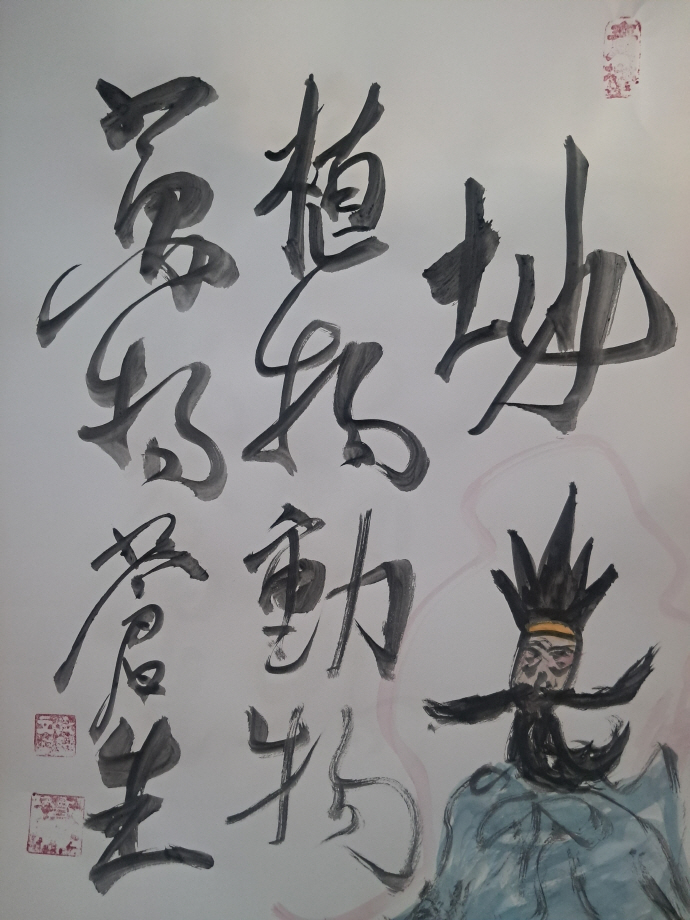 地
植物動物
萬物蒼生